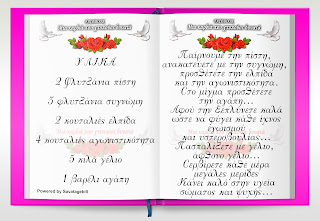 ΥΛΙΚΑ
2 Φλυτζάνια πίστη
5 φλυτζάνια συγνώμη
2 κουταλιές ελπίδα
4 κουταλιές αγωνιστικότητα
5 κιλά γέλιο
1 βαρέλι αγάπη
Powered by Savotage68
Παίρνουμε την πίστη,
ανακατένετε με την συγνώμη,
προσθέτετε την ελπίδα
και την αγωνιστικότητα.
Στο μίγμα προσθέτετε
την αγάπη...
Αφού την ξεπλύνετε καλά
ώστε να φύγει κάθε ίχνος
εγωισμού
και υστεροβουλίας...
Πασπαλίζετε με γέλιο,
αφθονο γέλιο...
Σερβίρετε κάθε μέρα
μεγάλες μερίδες
Κάνει καλό στην υγεία
σώματος και ψυχής...